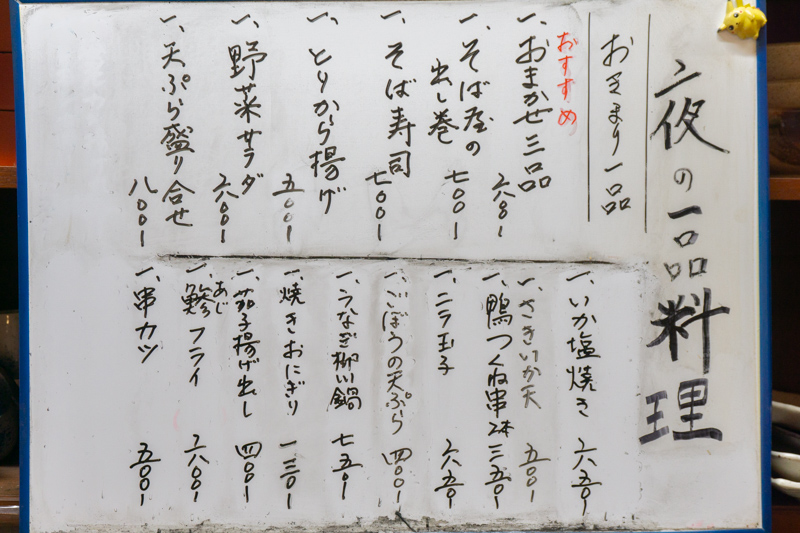 夜の一品料理
おきまり一品
おすすめ
一、おまかせ三品
六八〇ー
一、そば屋の
出し巻
七〇〇ー
一、そば寿司
七〇〇ー
一、とりから揚げ
五〇〇ー
一、野菜サラダ
六〇〇ー
一、天ぷら盛り合せ
八〇〇ー
一、いか塩焼き
六五〇ー
一、さきいか天
五〇〇ー
一、鴨つくね串2本
三五〇ー
一、ニラ玉子
六五〇ー
一、ごぼうの天ぷら
四〇〇ー
一、うなぎ柳川鍋
七五〇ー
一、焼きおにぎり
一三〇ー
一、茄子揚げ出し
四〇〇ー
一、鯵フライ
あじ
六〇〇ー
一、串カツ
五〇〇ー